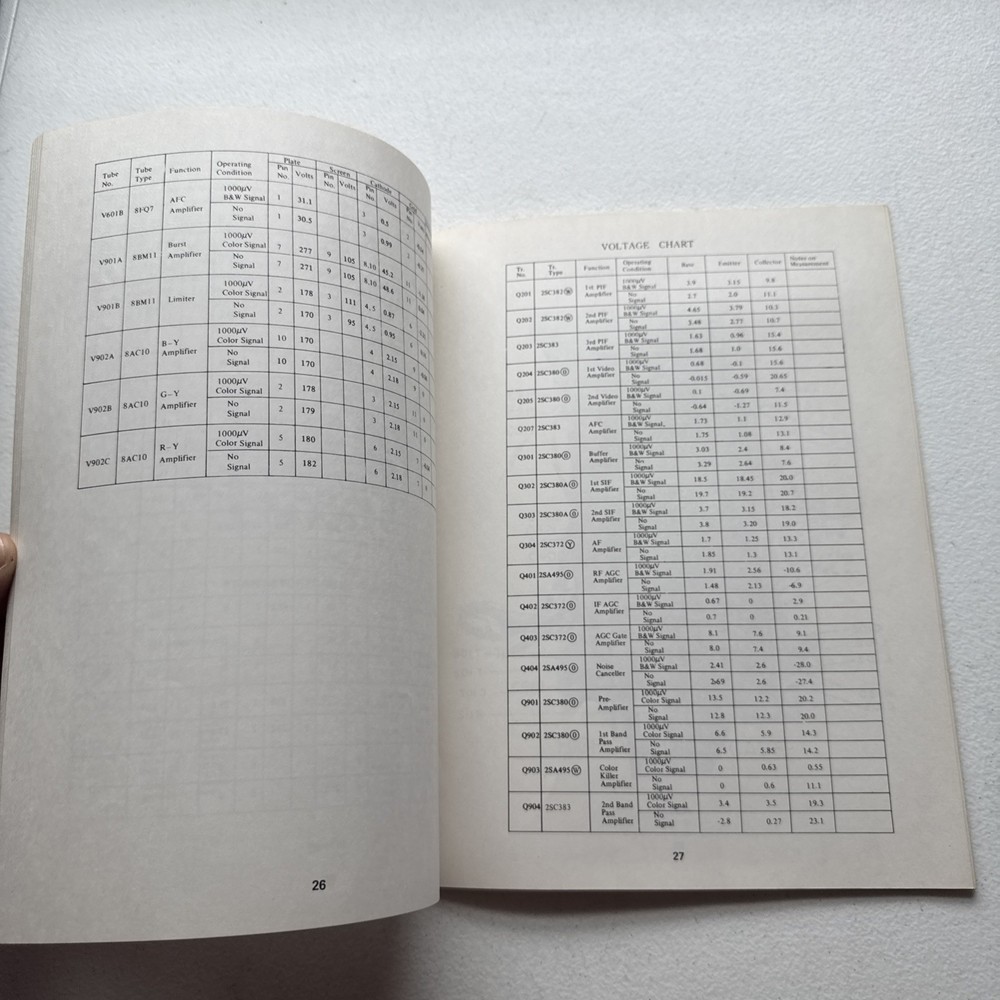 Tube No. Tube Type Function Operating Condition Plate Pin No. Volts Screen Pin No. Volts Cathode Pin No. Volts
V601B 8FQ7 AFC Amplifier 1000μV B&W Signal 1 31.1 3 0.5
No Signal 1 30.5 3 0.99
V901A 8BM11 Burst Amplifier 1000μV Color Signal 7 277 9 105 8,10 45.2
No Signal 7 271 9 105 8,10 48.6
V901B 8BM11 Limiter 1000μV Color Signal 2 178 3 111 4,5 0.87
No Signal 2 170 3 95 4,5 0.95
V902A 8AC10 B-Y Amplifier 1000μV Color Signal 10 170 4 2.15
No Signal 10 170 4 2.18
V902B 8AC10 G-Y Amplifier 1000μV Color Signal 2 178 3 2.15
No Signal 2 179 3 2.18
V902C 8AC10 R-Y Amplifier 1000μV Color Signal 5 180 6 2.15
No Signal 5 182 6 2.18
26
VOLTAGE CHART
Tr. No. Tr. Type Function Operating Condition Base Emitter Collector Notes on Measurement
Q201 2SC382Ⓦ 1st PIF Amplifier 1000μV B&W Signal 3.9 3.15 9.8
No Signal 2.7 2.0 11.1
Q202 2SC382Ⓦ 2nd PIF Amplifier 1000μV B&W Signal 4.65 3.79 10.3
No Signal 3.48 2.77 10.7
Q203 2SC383 3rd PIF Amplifier 1000μV B&W Signal 1.63 0.96 15.4
No Signal 1.68 1.0 15.6
Q204 2SC380Ⓞ 1st Video Amplifier 1000μV B&W Signal 0.68 -0.1 15.6
No Signal -0.015 -0.59 20.65
Q205 2SC380Ⓞ 2nd Video Amplifier 1000μV B&W Signal 0.1 -0.69 7.4
No Signal -0.64 -1.27 11.5
Q207 2SC383 AFC Amplifier 1000μV B&W Signal 1.73 1.1 12.9
No Signal 1.75 1.08 13.1
Q301 2SC380Ⓞ Buffer Amplifier 1000μV B&W Signal 3.03 2.4 8.4
No Signal 3.29 2.64 7.6
Q302 2SC380AⓄ 1st SIF Amplifier 1000μV B&W Signal 18.5 18.45 20.0
No Signal 19.7 19.2 20.7
Q303 2SC380AⓄ 2nd SIF Amplifier 1000μV B&W Signal 3.7 3.15 18.2
No Signal 3.8 3.20 19.0
Q304 2SC372Ⓨ AF Amplifier 1000μV B&W Signal 1.7 1.25 13.3
No Signal 1.85 1.3 13.1
Q401 2SA495Ⓞ RF AGC Amplifier 1000μV B&W Signal 1.91 2.56 -10.6
No Signal 1.48 2.13 -6.9
Q402 2SC372Ⓞ IF AGC Amplifier 1000μV B&W Signal 0.67 0 2.9
No Signal 0.7 0 0.21
Q403 2SC372Ⓞ AGC Gate Amplifier 1000μV B&W Signal 8.1 7.6 9.1
No Signal 8.0 7.4 9.4
Q404 2SA495Ⓞ Noise Canceller 1000μV B&W Signal 2.41 2.6 -28.0
No Signal 2.69 2.6 -27.4
Q901 2SC380Ⓞ Pre-Amplifier 1000μV Color Signal 13.5 12.2 20.2
No Signal 12.8 12.3 20.0
Q902 2SC380Ⓞ 1st Band Pass Amplifier 1000μV Color Signal 6.6 5.9 14.3
No Signal 6.5 5.85 14.2
Q903 2SA495Ⓦ Color Killer Amplifier 1000μV Color Signal 0 0.63 0.55
No Signal 0 0.6 11.1
Q904 2SC383 2nd Band Pass Amplifier 1000μV Color Signal 3.4 3.5 19.3
No Signal -2.8 0.27 23.1
27